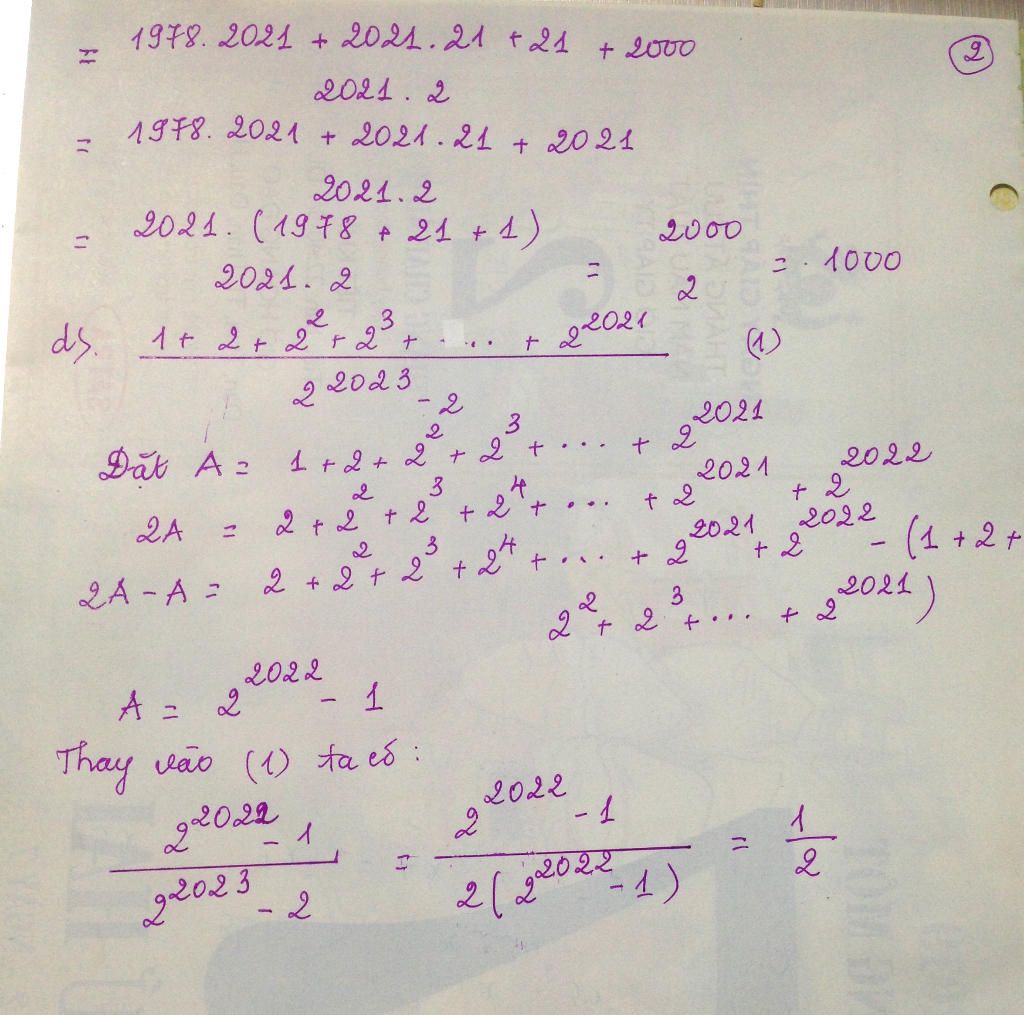 = 1978. 2021 + 2021. 21 + 21 + 2000
2
2021 . 2
= 1978. 2021 + 2021. 21 + 2021
2021. 2
= 2021. (1978 + 21 + 1)
2021. 2
= 2000
2
= 1000
d). 1 + 2 + 2^2 + 2^3 + .... + 2^2021 (1)
2^2023 - 2
Đặt A = 1 + 2 + 2^2 + 2^3 + ... + 2^2021
2A = 2 + 2^2 + 2^3 + 2^4 + ... + 2^2021 + 2^2022
2A - A = 2 + 2^2 + 2^3 + 2^4 + ... + 2^2021 + 2^2022 - (1 + 2 +
2^2 + 2^3 + ... + 2^2021)
A = 2^2022 - 1
Thay vào (1) ta có :
2^2022 - 1
2^2023 - 2
= 2^2022 - 1
2(2^2022 - 1)
= 1
2